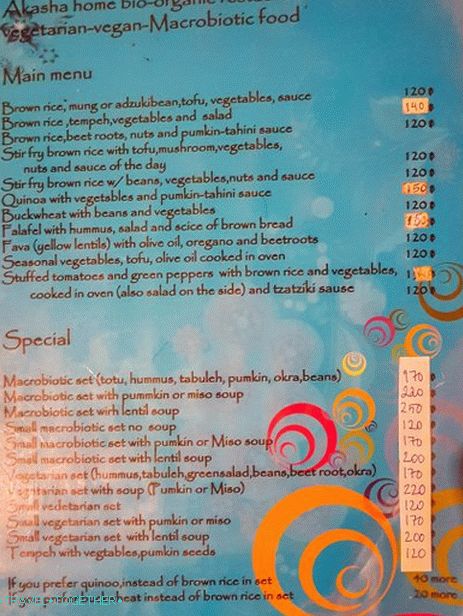 Akasha home bio-organic
vegetarian-vegan-Macrobiotic food
Main menu
Brown rice, mung or adzukibean,tofu, vegetables, sauce 120฿
Brown rice ,tempeh,vegetables and salad 140฿
Brown rice,beet roots, nuts and pumkin-tahini sauce 120฿
Stir fry brown rice with tofu,mushroom,vegetables,
nuts and sauce of the day 120฿
Stir fry brown rice w/ beans, vegetables,nuts and sauce 120฿
Quinoa with vegetsbles and pumkin-tahini sauce 150฿
Buckwheat with beans and vegetables 120฿
Falafel with hummus, salad and scice of brown bread
Fava (yellow lentils) with olive oil, oregano and beetroots 120฿
Seasonal vegetables, tofu, olive oil cooked in oven 120฿
Stuffed tomatoes and green peppers with brown rice and vegetables,
cooked in oven (also salad on the side) and tzatziki sause 120฿
Special
Macrobiotic set (totu, hummus, tabuleh, pumkin, okra,beans) 170
Macrobiotic set with pummkin or miso soup 220
Macrobiotic set wirh lentil soup 250
Small macrobiotic set no soup 120
Small macrobiotic set with pumkin or Miso soup 170
Small macrobiotic set with lentil soup 200
Vegetarian set (hummus,tabuleh,greensalad,beans,beet root,okra) 170
Vegetarian set with soup (Pumkin or Miso) 220
Small vedetarian set 120
Small vegetarian set with pumkin or miso 170
Small vegetarian set with lentil soup 200
Tempeh with vegtables,pumkin seeds 120
If you prefer quinoo,instead of brown rice in set 40 more
If you prefer instead of brown rice in set 20 more